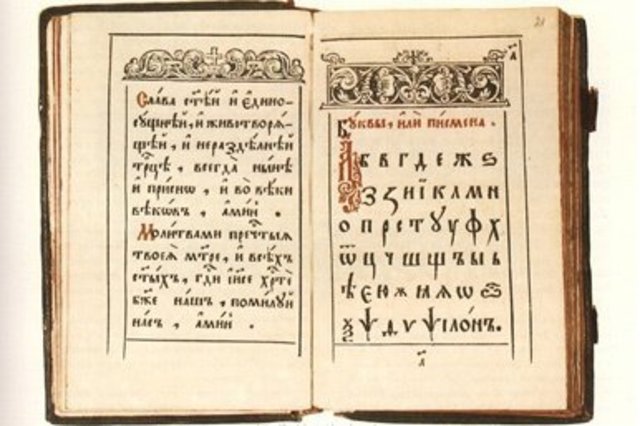 Сла́ва ст҃ѣ́й и҆ є҆ди́но-
су́щнѣй, и҆ животворѧ́-
щей, и҆ нераздѣ́лнѣй
трⷪ҇цѣ, всегда̀ ны́нѣ
и҆ при́снѡ, и҆ во вѣ́ки
вѣкѡ́въ, а҆ми́нь.
Моли́твами пречⷭ҇тыѧ
твоеѧ̀ мт҃ре, и҆ всѣ́хъ
ст҃ы́хъ, гдⷭ҇и і҆и҃се хрⷭ҇тѐ
бж҃е на́шъ, поми́луй
на́съ, а҆ми́нь.
21
Бꙋ́квы, и҆лѝ пи́смена.
А Б В Г Д Е Ж Ѕ
З И Ї К Л М Н
О П Р С Т Ꙋ У Ф Х
Ѿ Ц Ч Ш Щ Ъ Ы Ь
Ѣ Є Ю Ѫ Ѧ
Ѯ Ѱ
а҃